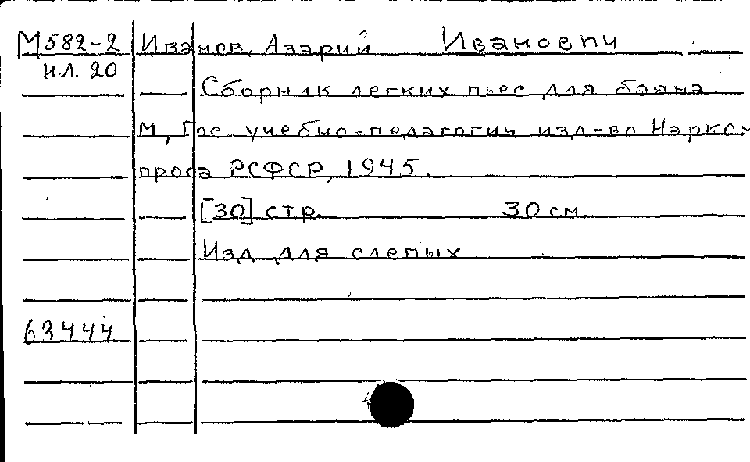 М582-2 Иванов, Азарий Иванович
ил. 20
Сборник легких пьес для баяна
М, Гос. учебно-педагогич изд-во Нарком
проса РСФСР, 1945.
[30] стр. 30 см.
Изд для слепых
63444